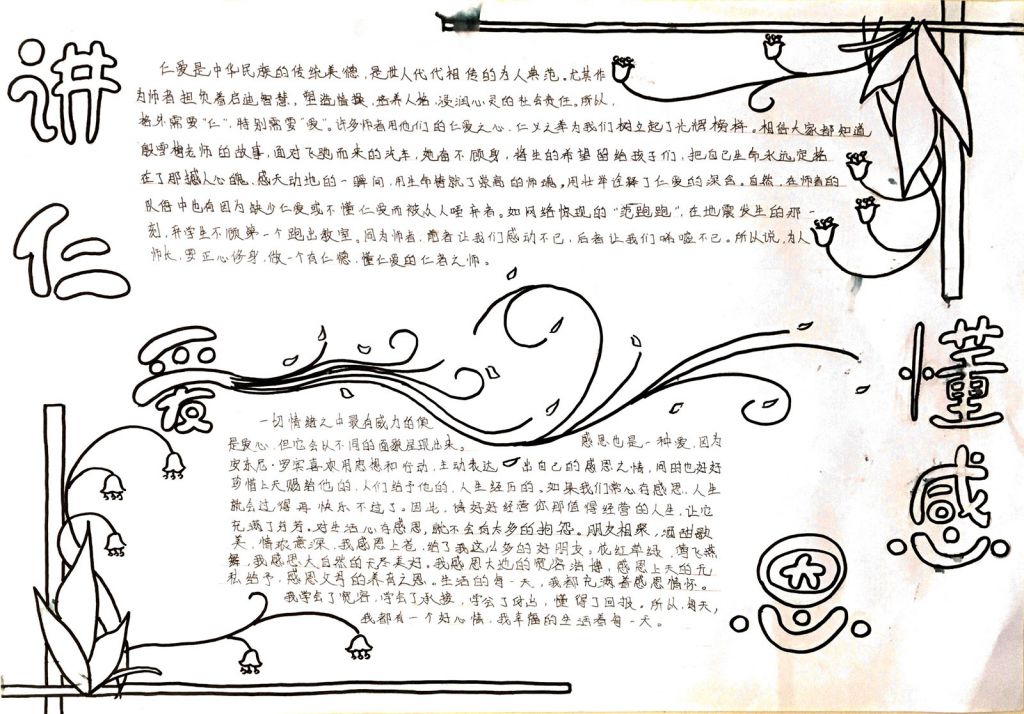 讲
仁
爱
懂
感
恩
仁爱是中华民族的传统美德，是世人代代相传的为人典范。尤其作
为师者担负着启迪智慧，塑造情操，培养人格，浸润心灵的社会责任。所以，
格外需要“仁”，特别需要“爱”。许多师者用他们的仁爱之心，仁义之举为我们树立起了光辉榜样。相信大家都知道
殷雪梅老师的故事，面对飞驰而来的汽车，她奋不顾身，将生的希望留给孩子们，把自己生命永远定格
在了那撼人心魄，感天动地的一瞬间，用生命铸就了崇高的师魂，用壮举诠释了仁爱的深含。自然，在师者的
队伍中也有因为缺少仁爱或不懂仁爱而被众人唾弃者。如网络惊现的“范跑跑”，在地震发生的那一
刻，弃学生不顾第一个跑出教室。同为师者，前者让我们感动不已，后者让我们唏嘘不已。所以说，为人
师长，要正心修身，做一个有仁德，懂仁爱的仁者之师。
一切情绪之中最有威力的便
是爱心，但它会从不同的面貌呈现出来。 感恩也是一种爱，因为
安东尼·罗宾喜欢用思想和行动，主动表达出自己的感恩之情，同时也好好
珍惜上天赐给他的，人们给予他的，人生经历的。如果我们常心存感恩，人生
就会过得再快乐不过了。因此，请好好经营你那值得经营的人生，让它
充满了芬芳。对生活心存感恩，就不会有太多的抱怨。朋友相聚，酒甜歌
美，情浓意深，我感恩上苍，给了我这么多的好朋友，花红草绿，莺飞燕
舞，我感恩大自然的无尽美好。我感恩大地的宽容浩博，感恩上天的无
私给予，感恩父母的养育之恩。生活的每一天，我都充满着感恩情怀。
我学会了宽容，学会了承接，学会了付出，懂得了回报。所以，每天，
我都有一个好心情，我幸福的生活着每一天。